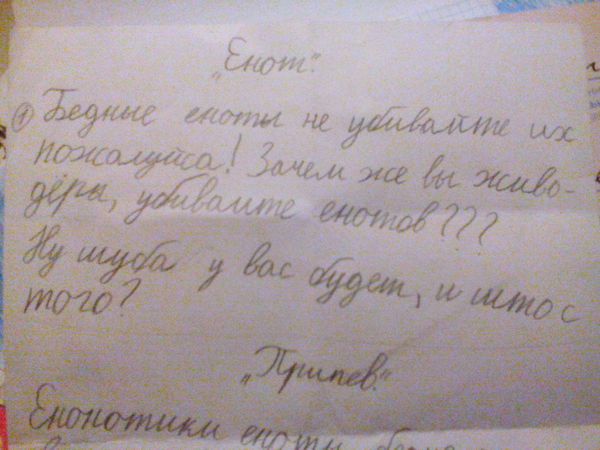 „Енот".
① Бедные еноты не убивайте их
пожалуйта! Зачем же вы живо-
дёры, убиваите енотов???
Ну шуба у вас будет, и што с
того?
„Припев."
Енонотики еноты,